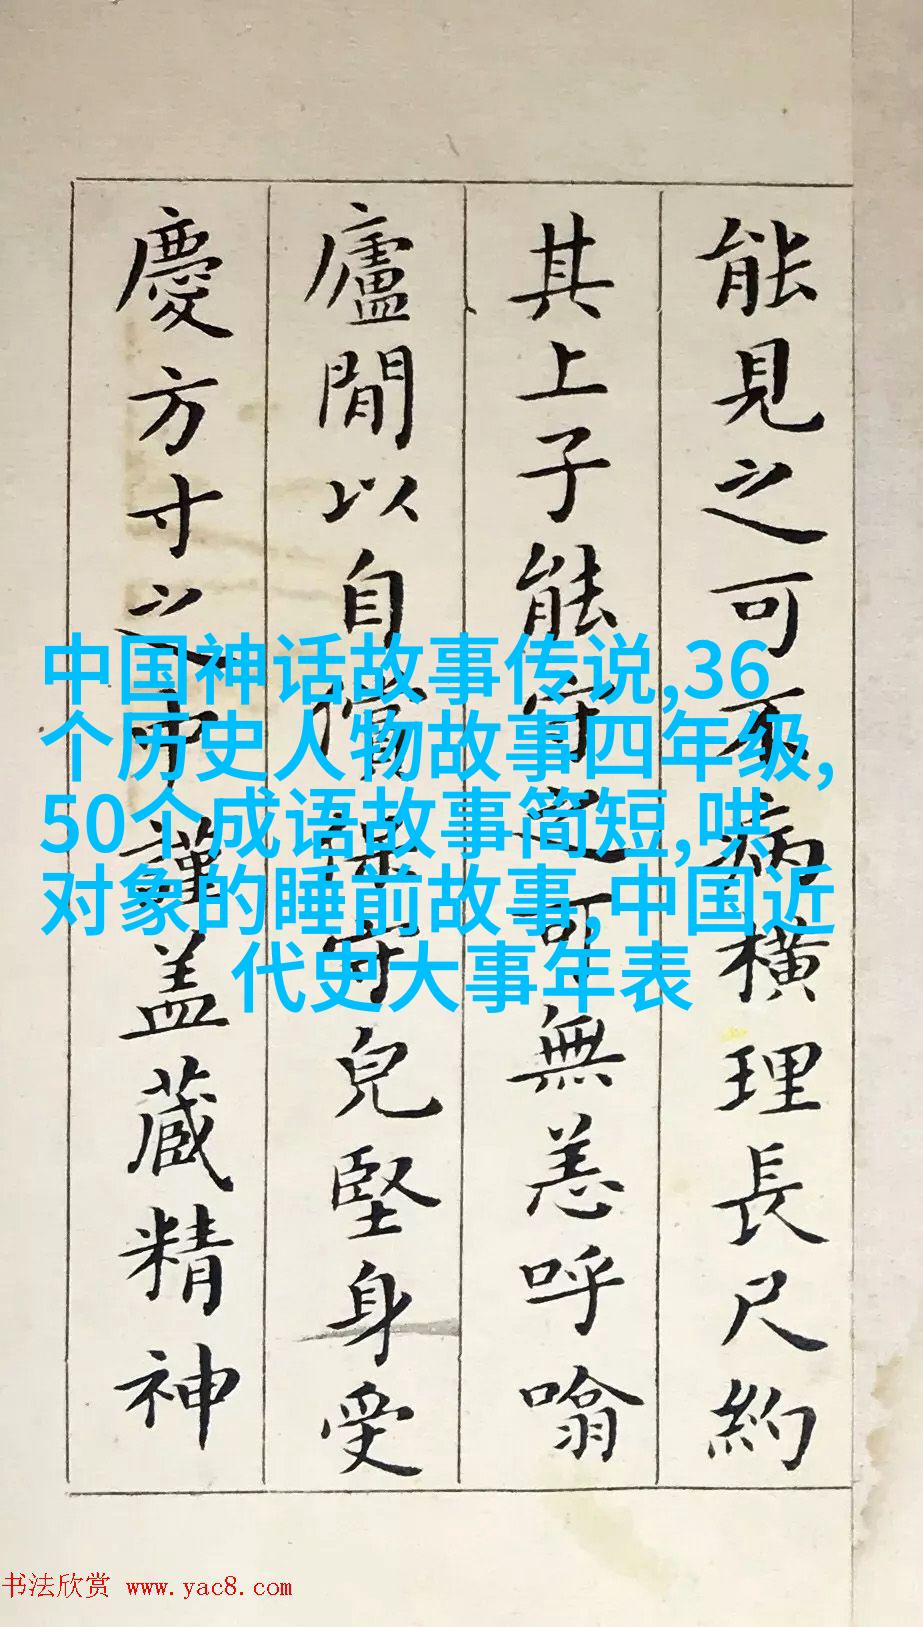 能見之可不病橫理長尺約
其上子能守之可無恙呼噏
廬閒以自償保守兒堅身受
慶方寸之中謹盖藏精神
中国神话故事传说,36
个历史人物故事四年级,
50个成语故事简短,哄
对象的睡前故事,中国近
代史大事年表
书法欣赏 www.yac8.com